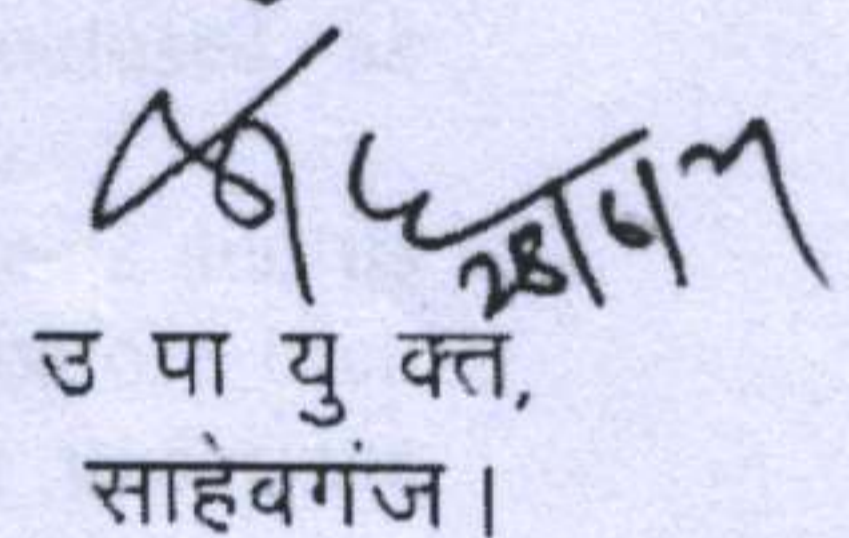 28/6/
उ पा यु क्त,
साहेवगंज।